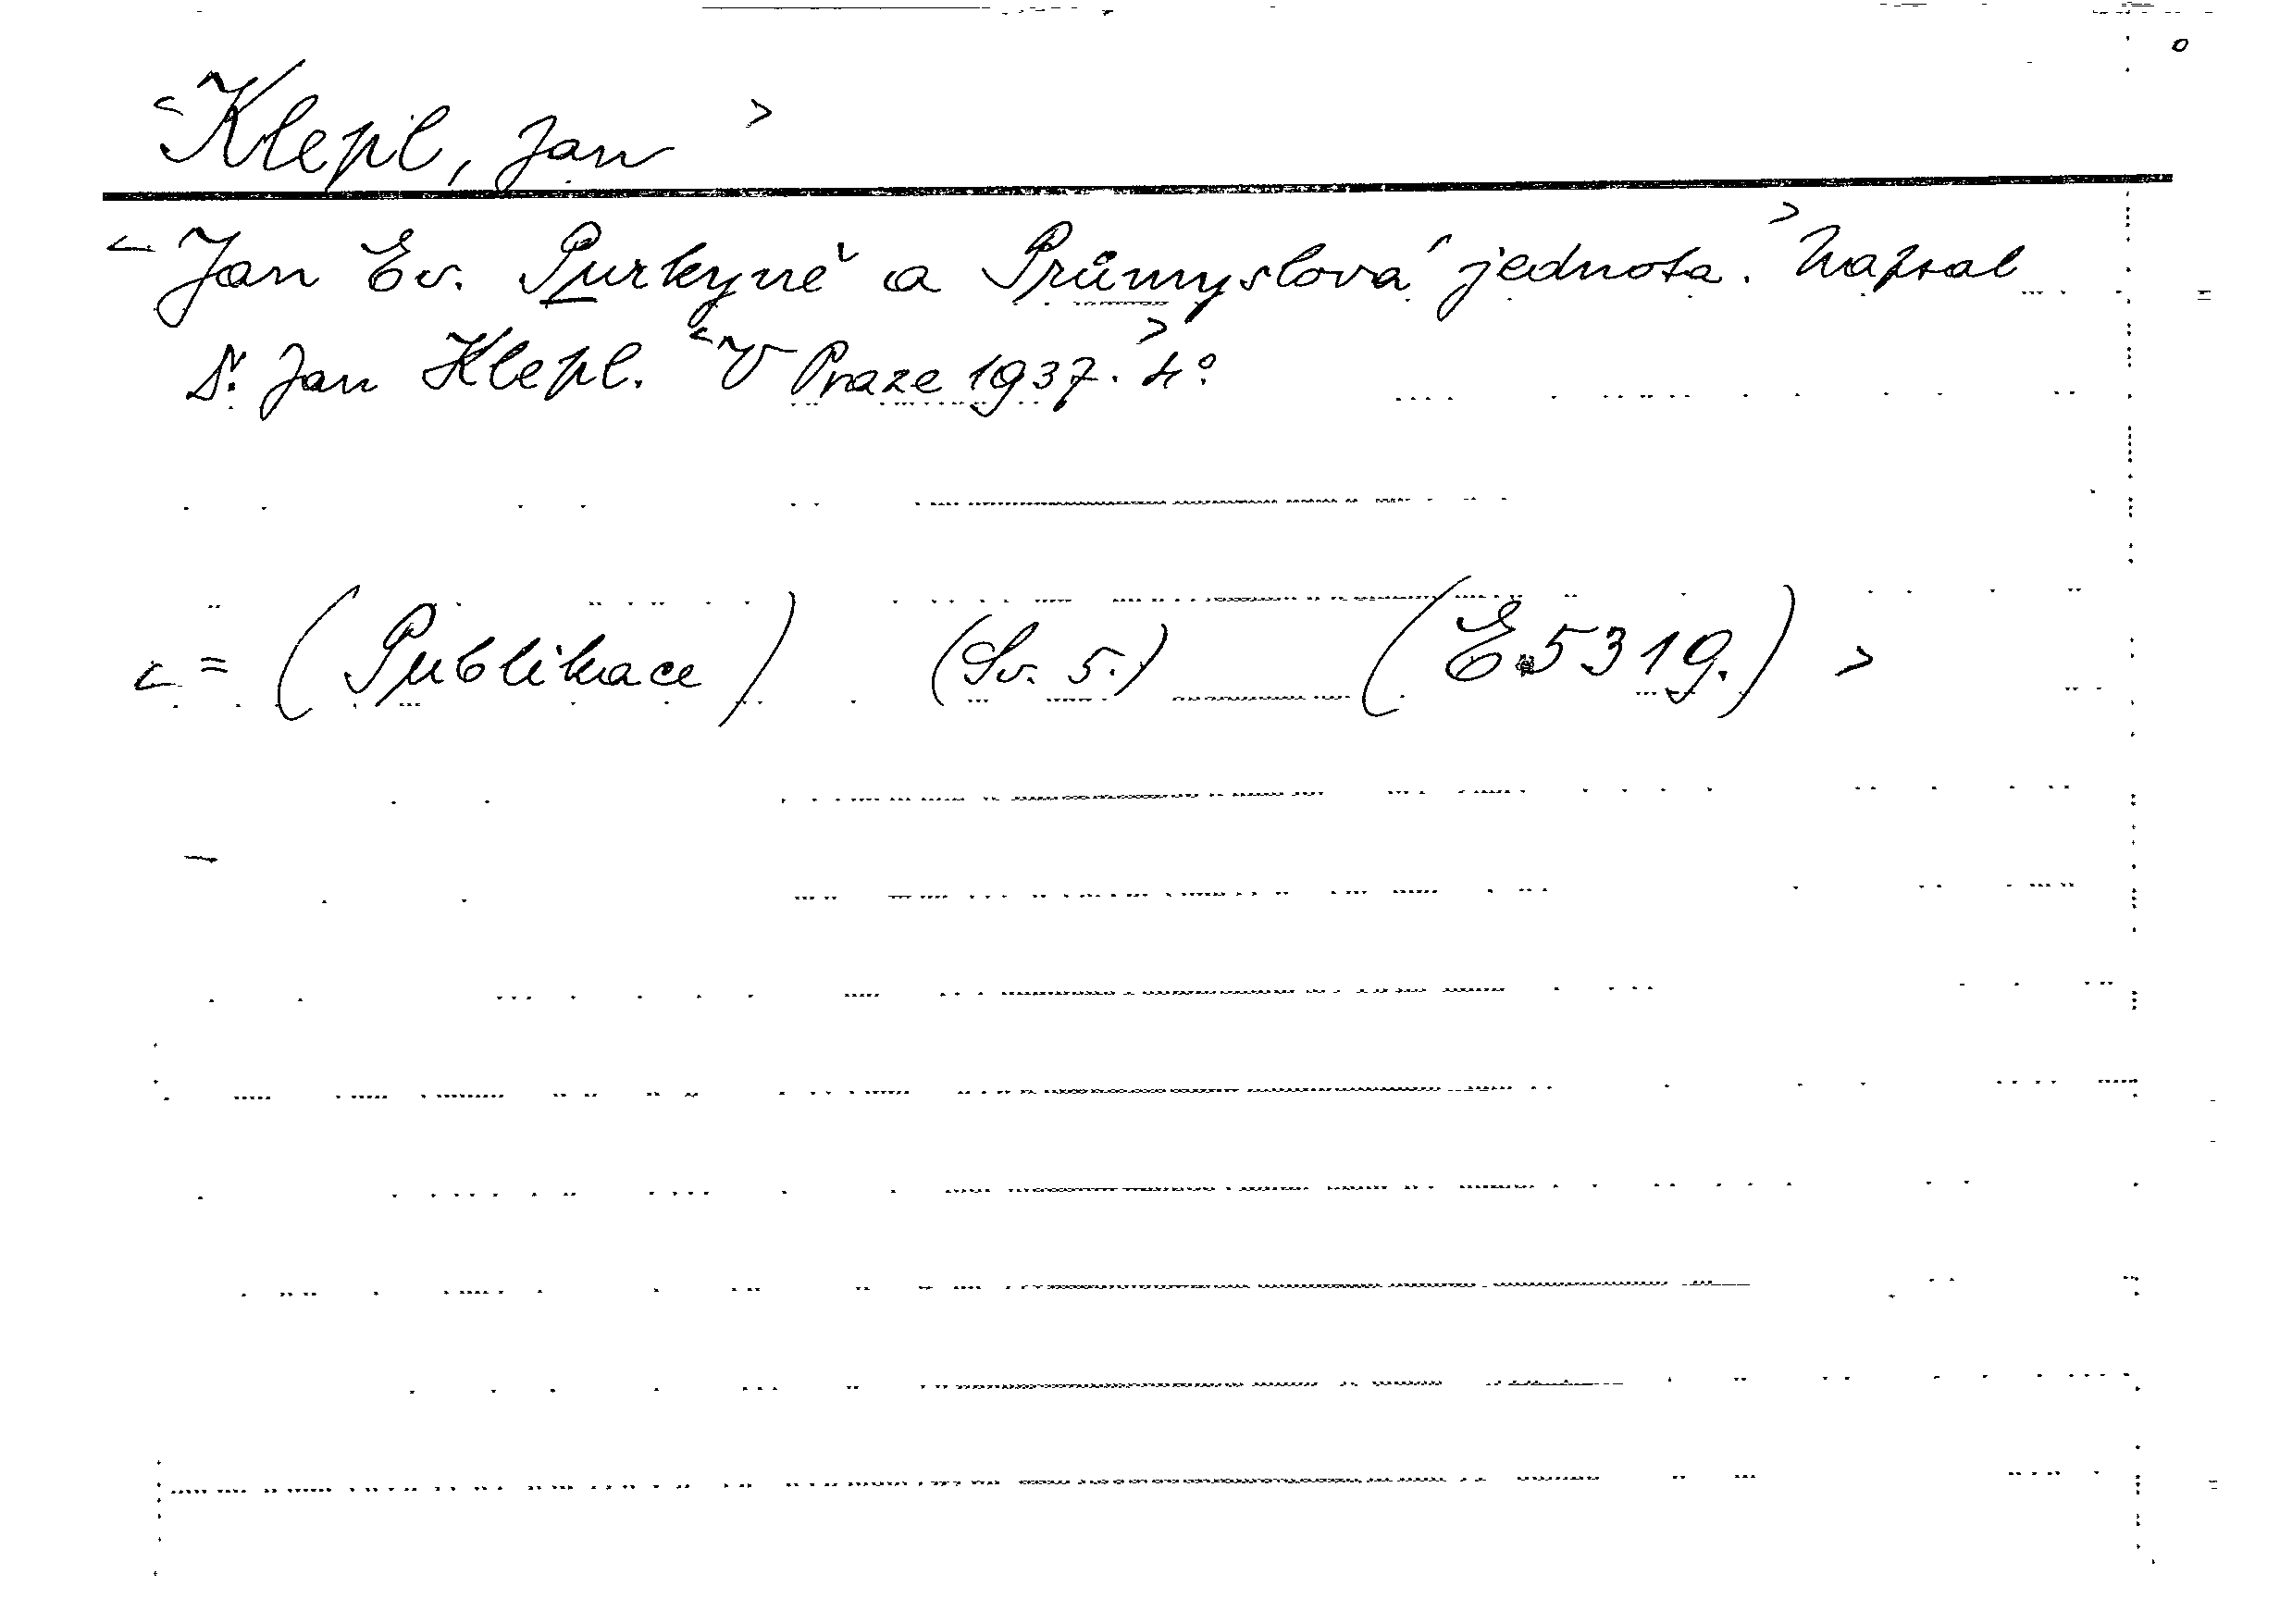 <Klepl, Jan>
<Jan Ev. Purkyně a Průmyslová jednota.> Napsal
Dr. Jan Klepl. <V Praze 1937.> 4°.
<= (Publikace) (Sv. 5.) (E.5319.)>